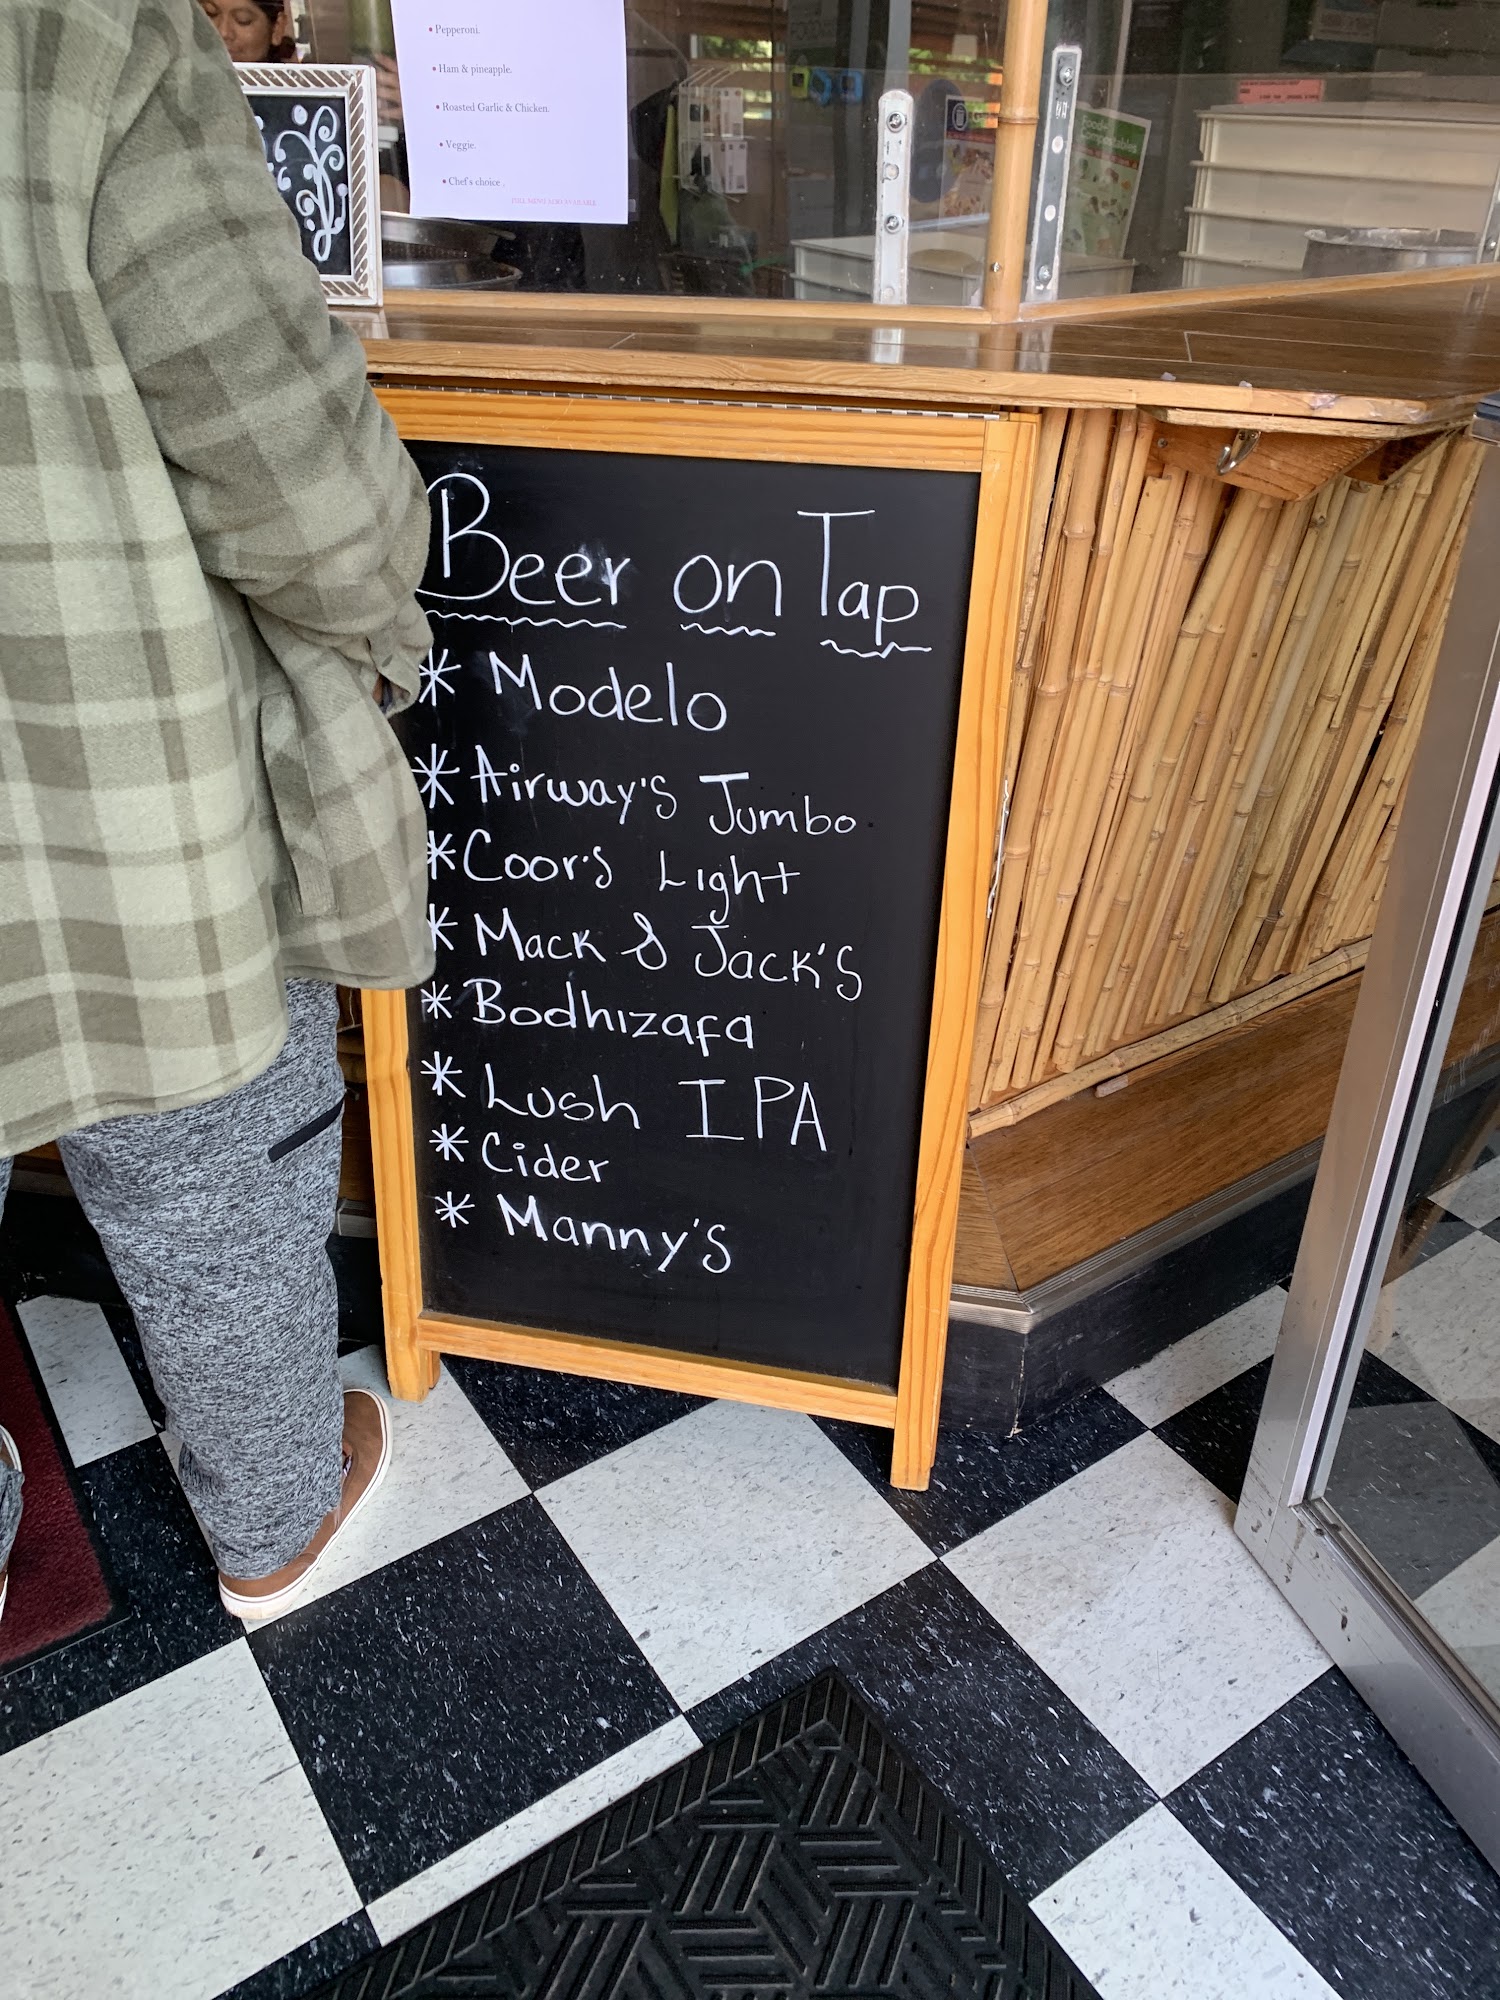 • Pepperoni.
• Ham & pineapple.
• Roasted Garlic & Chicken.
• Veggie.
• Chef's choice .
FULL MENU ALSO AVAILABLE
Beer on Tap
* Modelo
* Airway's Jumbo
* Coor's Light
* Mack & Jack's
* Bodhizafa
* Lush IPA
* Cider
* Manny's